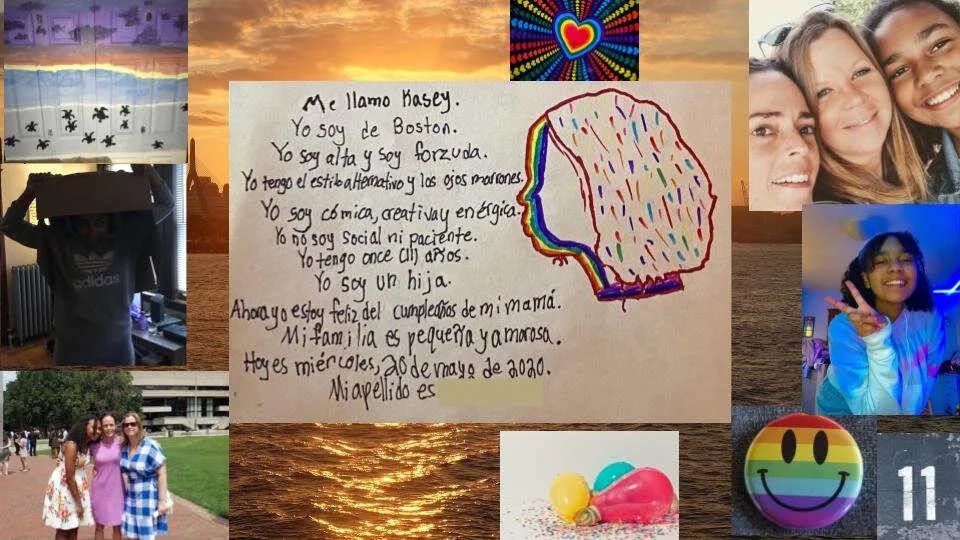 Me llamo Kasey.
Yo soy de Boston.
Yo soy alta y soy forzuda.
Yo tengo el estilo alternativo y los ojos marrones.
Yo soy cómica, creativa y enérgica.
Yo no soy social ni paciente.
Yo tengo once (11) años.
Yo soy un hija.
Ahora yo estoy feliz del cumpleaños de mi mamá.
Mi familia es pequeña y amorosa.
Hoy es miércoles, 20 de mayo de 2020.
Mi apellido es
adidas
11